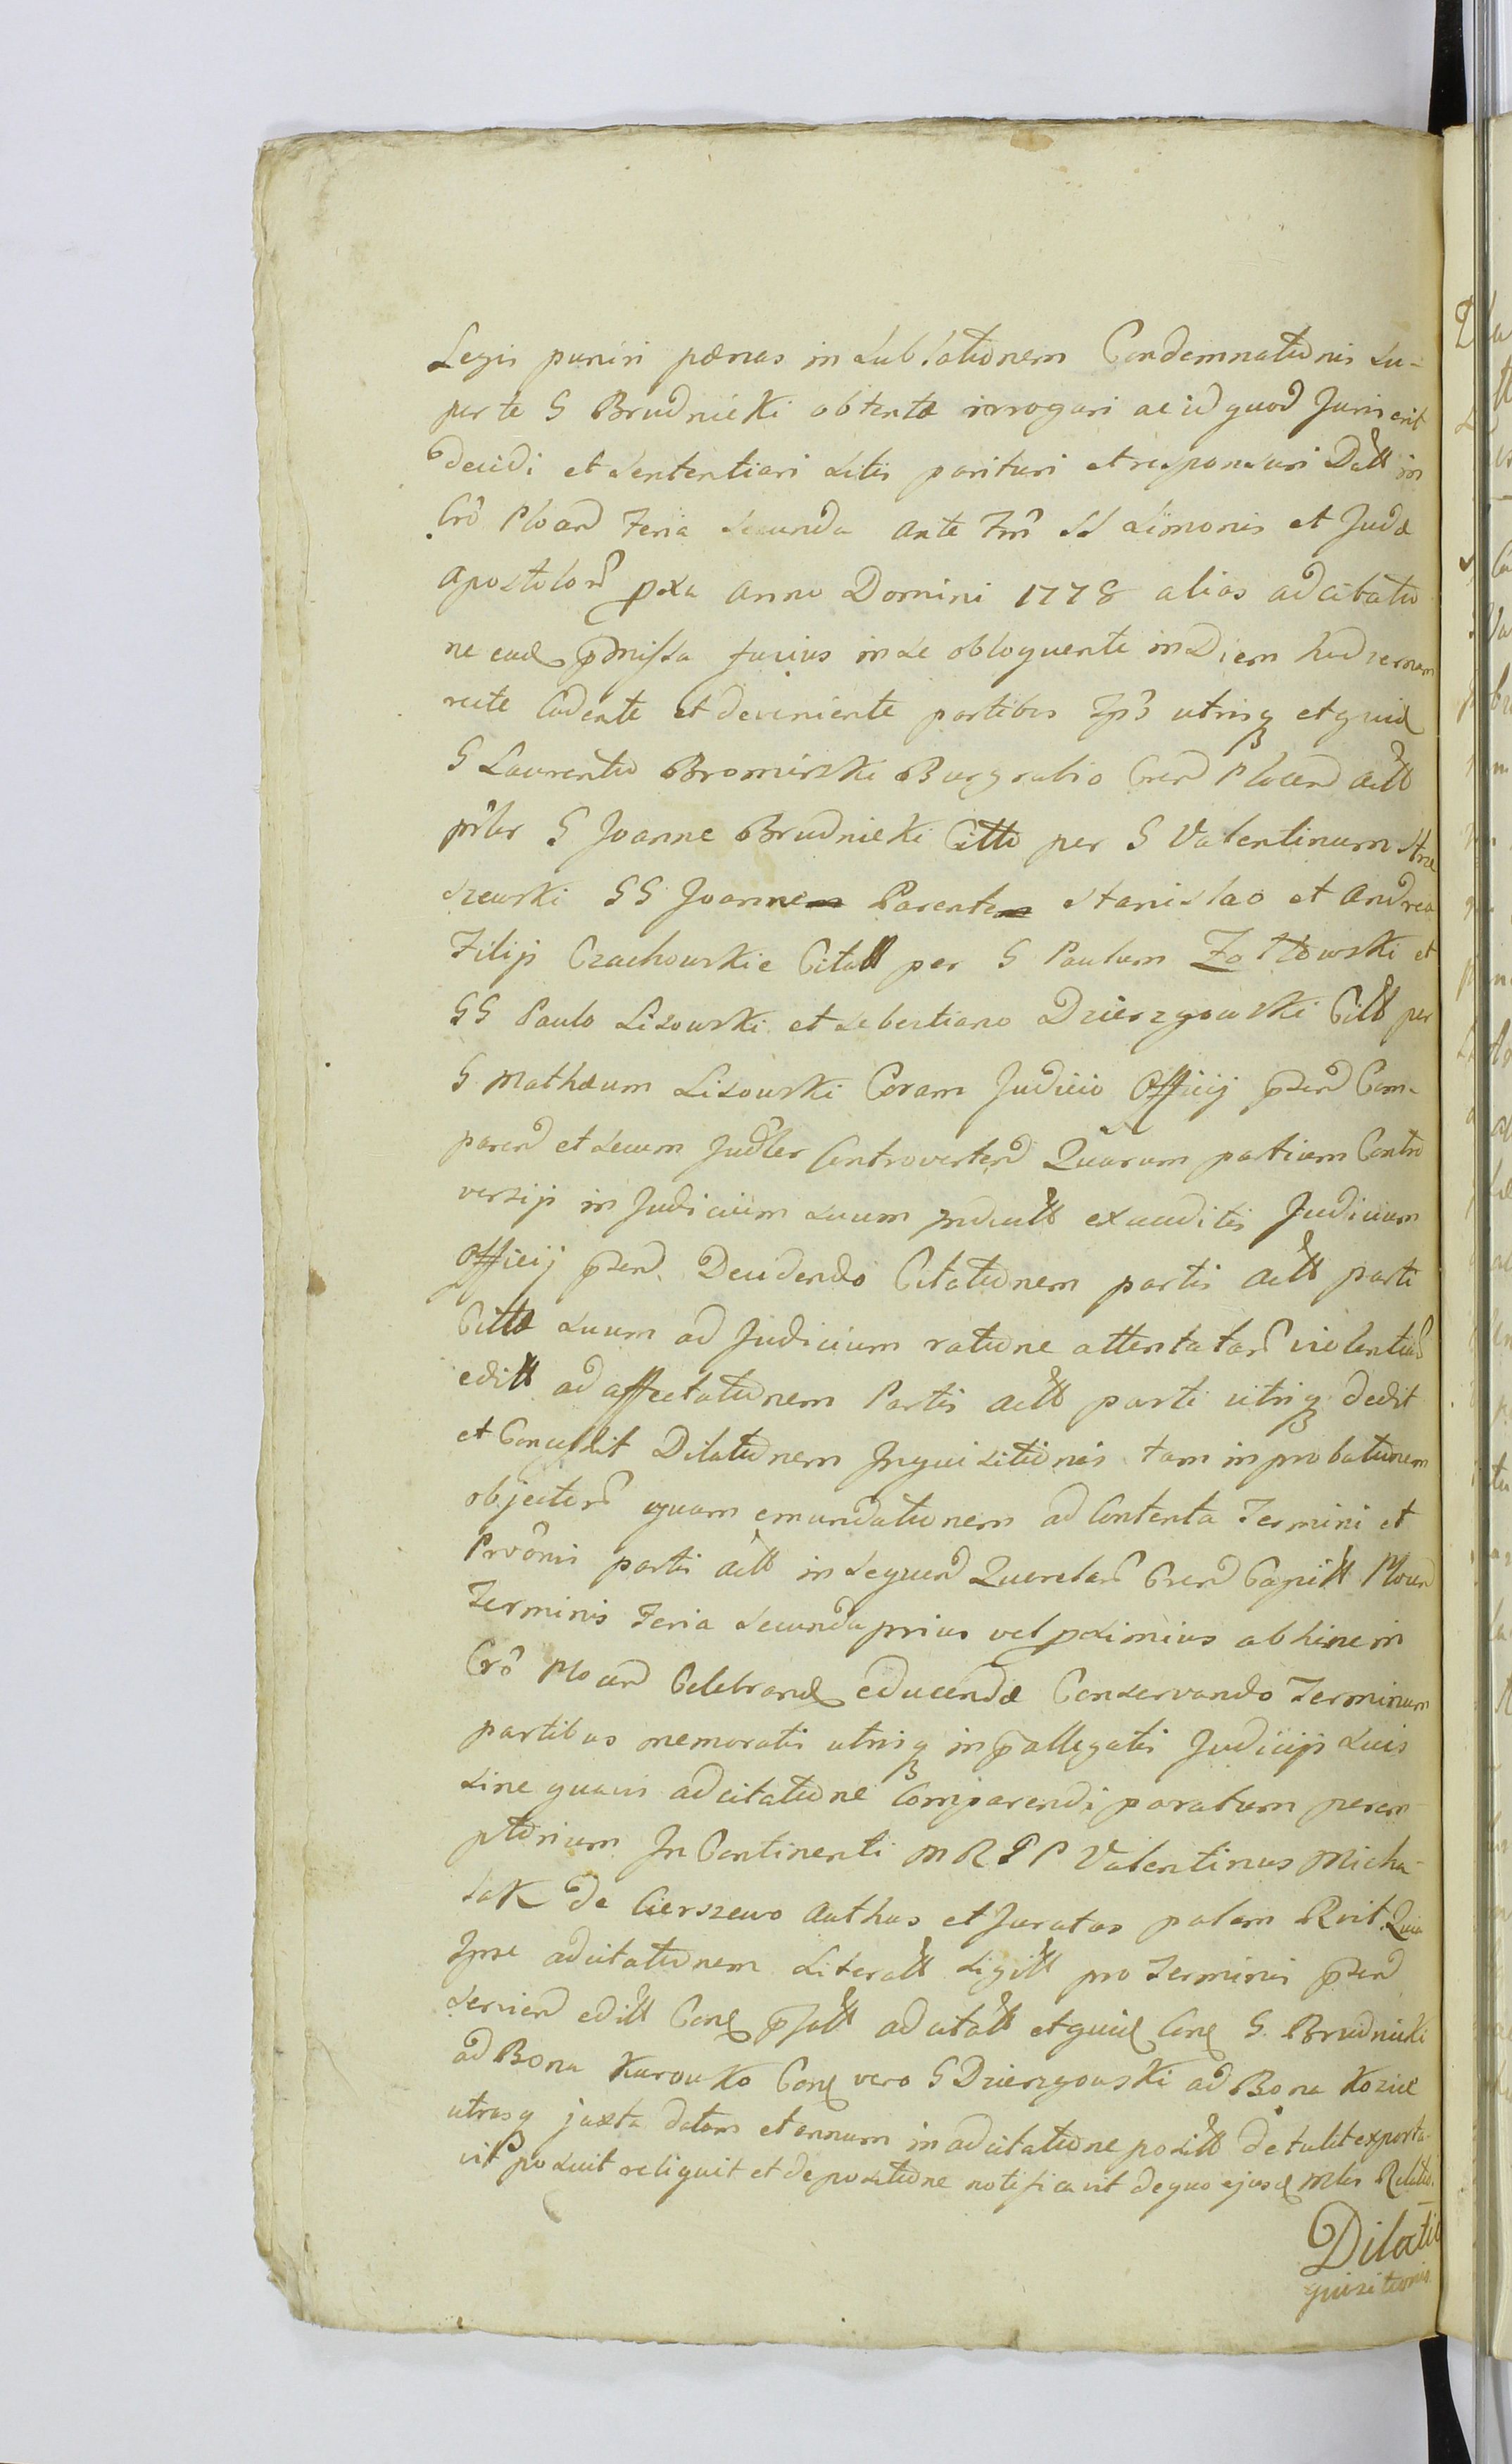 Legis puniri pænas in sublationem Condemnationis su-
per te G Brudnicki obtentæ irrogari ac id quod Juris erit
decidi et sententiari Litis parituri et responsuri Datt in
Crô Plocen Feria secunda ante Fm SS Simonis et Judæ
Apostolor pxa Anno Domini 1778 alias adcitatio
ne ead præmissa fusius in se obloquente in Diem hodiernam
recte Cadente et deveniente partibus Ips utrisq et quid
G Laurentio Bromirski Burgrabio Cren Plocen Actt
prlr G Joanne Brudnicki Citto per G Valentinum Strze
szewski GG Joanne Parente Stanislao et Andrea
Filijs Czachowskie Citatt per G Paulum Żółtowski et
GG Paulo Lisowski et Sebestiano Dzierzgowski Citt per
G Mathæum Lisowski Coram Judicio Officij præsen Com-
paren et secum Judlr Controverten Quarum partium Contro
versijs in Judicium suum indutt exauditis Judicium
Officij præsen. Decidendo Citationem partis Actt parti
Cittæ suum ad Judicium ratione attentatar violentiar
editt ad affectationem Partis Actt parti utriq dedit
et Concessit Dilationem Inquisitionis tam in probationem
objector quam emundationem ad Contenta Termini et
Prvônis parti Actt in sequen Querelar Cren Capitt Plocen
Terminis Feria secunda prius vel proximius abhinc in
Crô Plocen Celebrand educendæ Conservando Terminum
partibus memoratis utrisq in præallegatis Judicijs suis
sine quavis adcitatione Comparendi paratum perem-
ptorium In Continenti MRGP Valentinus Micha-
lak de Cierszewo Authus et Juratus palam Rvit Quia
Ipse adcitationem Literatt Sigitt pro Terminis præsen
servien editt Cone præfatt adcitatt et quid Cone G Brudnicki
ad Bona Karowko Cone vero G Dzierzgowski ad Bona Kozice
utrasq juxta datam et annum in adcitatione positt detulit exporta-
vit posuit reliquit et de positione notificavit de quo ejusd Mlis Relatio.
Dilatio
quisitionis